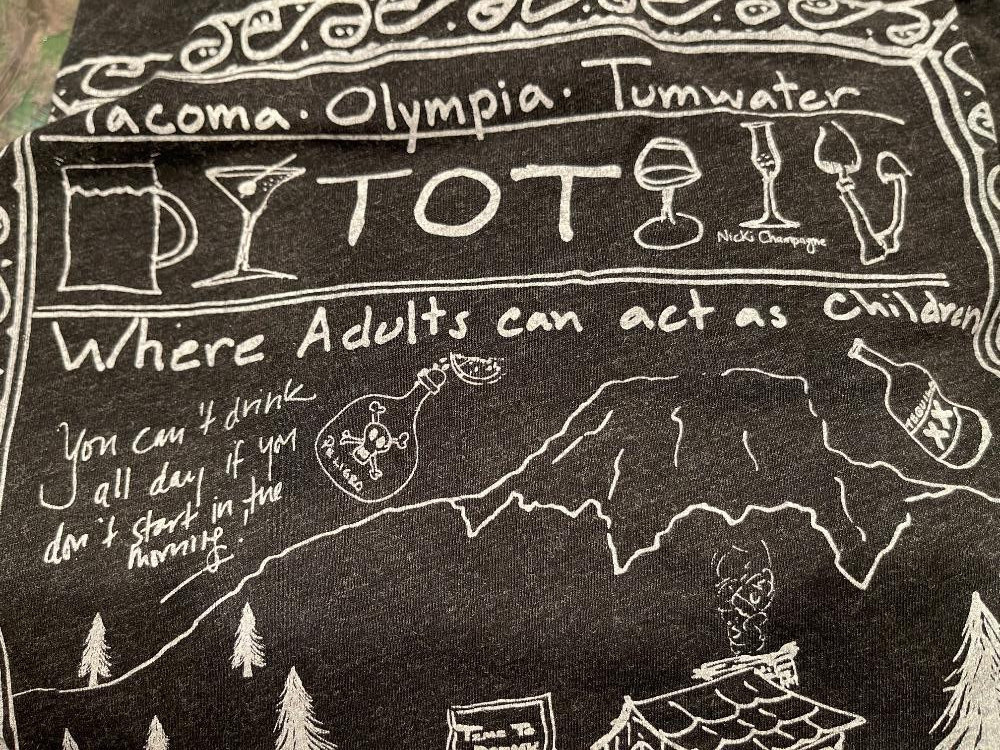 Tacoma · Olympia · Tumwater
TOT
Nicki Champagne
Where Adults can act as Children
You can't drink
all day if you
don't start in the
morning!
PELIGRO
TEQUILA
XX
TIME TO
DRINK